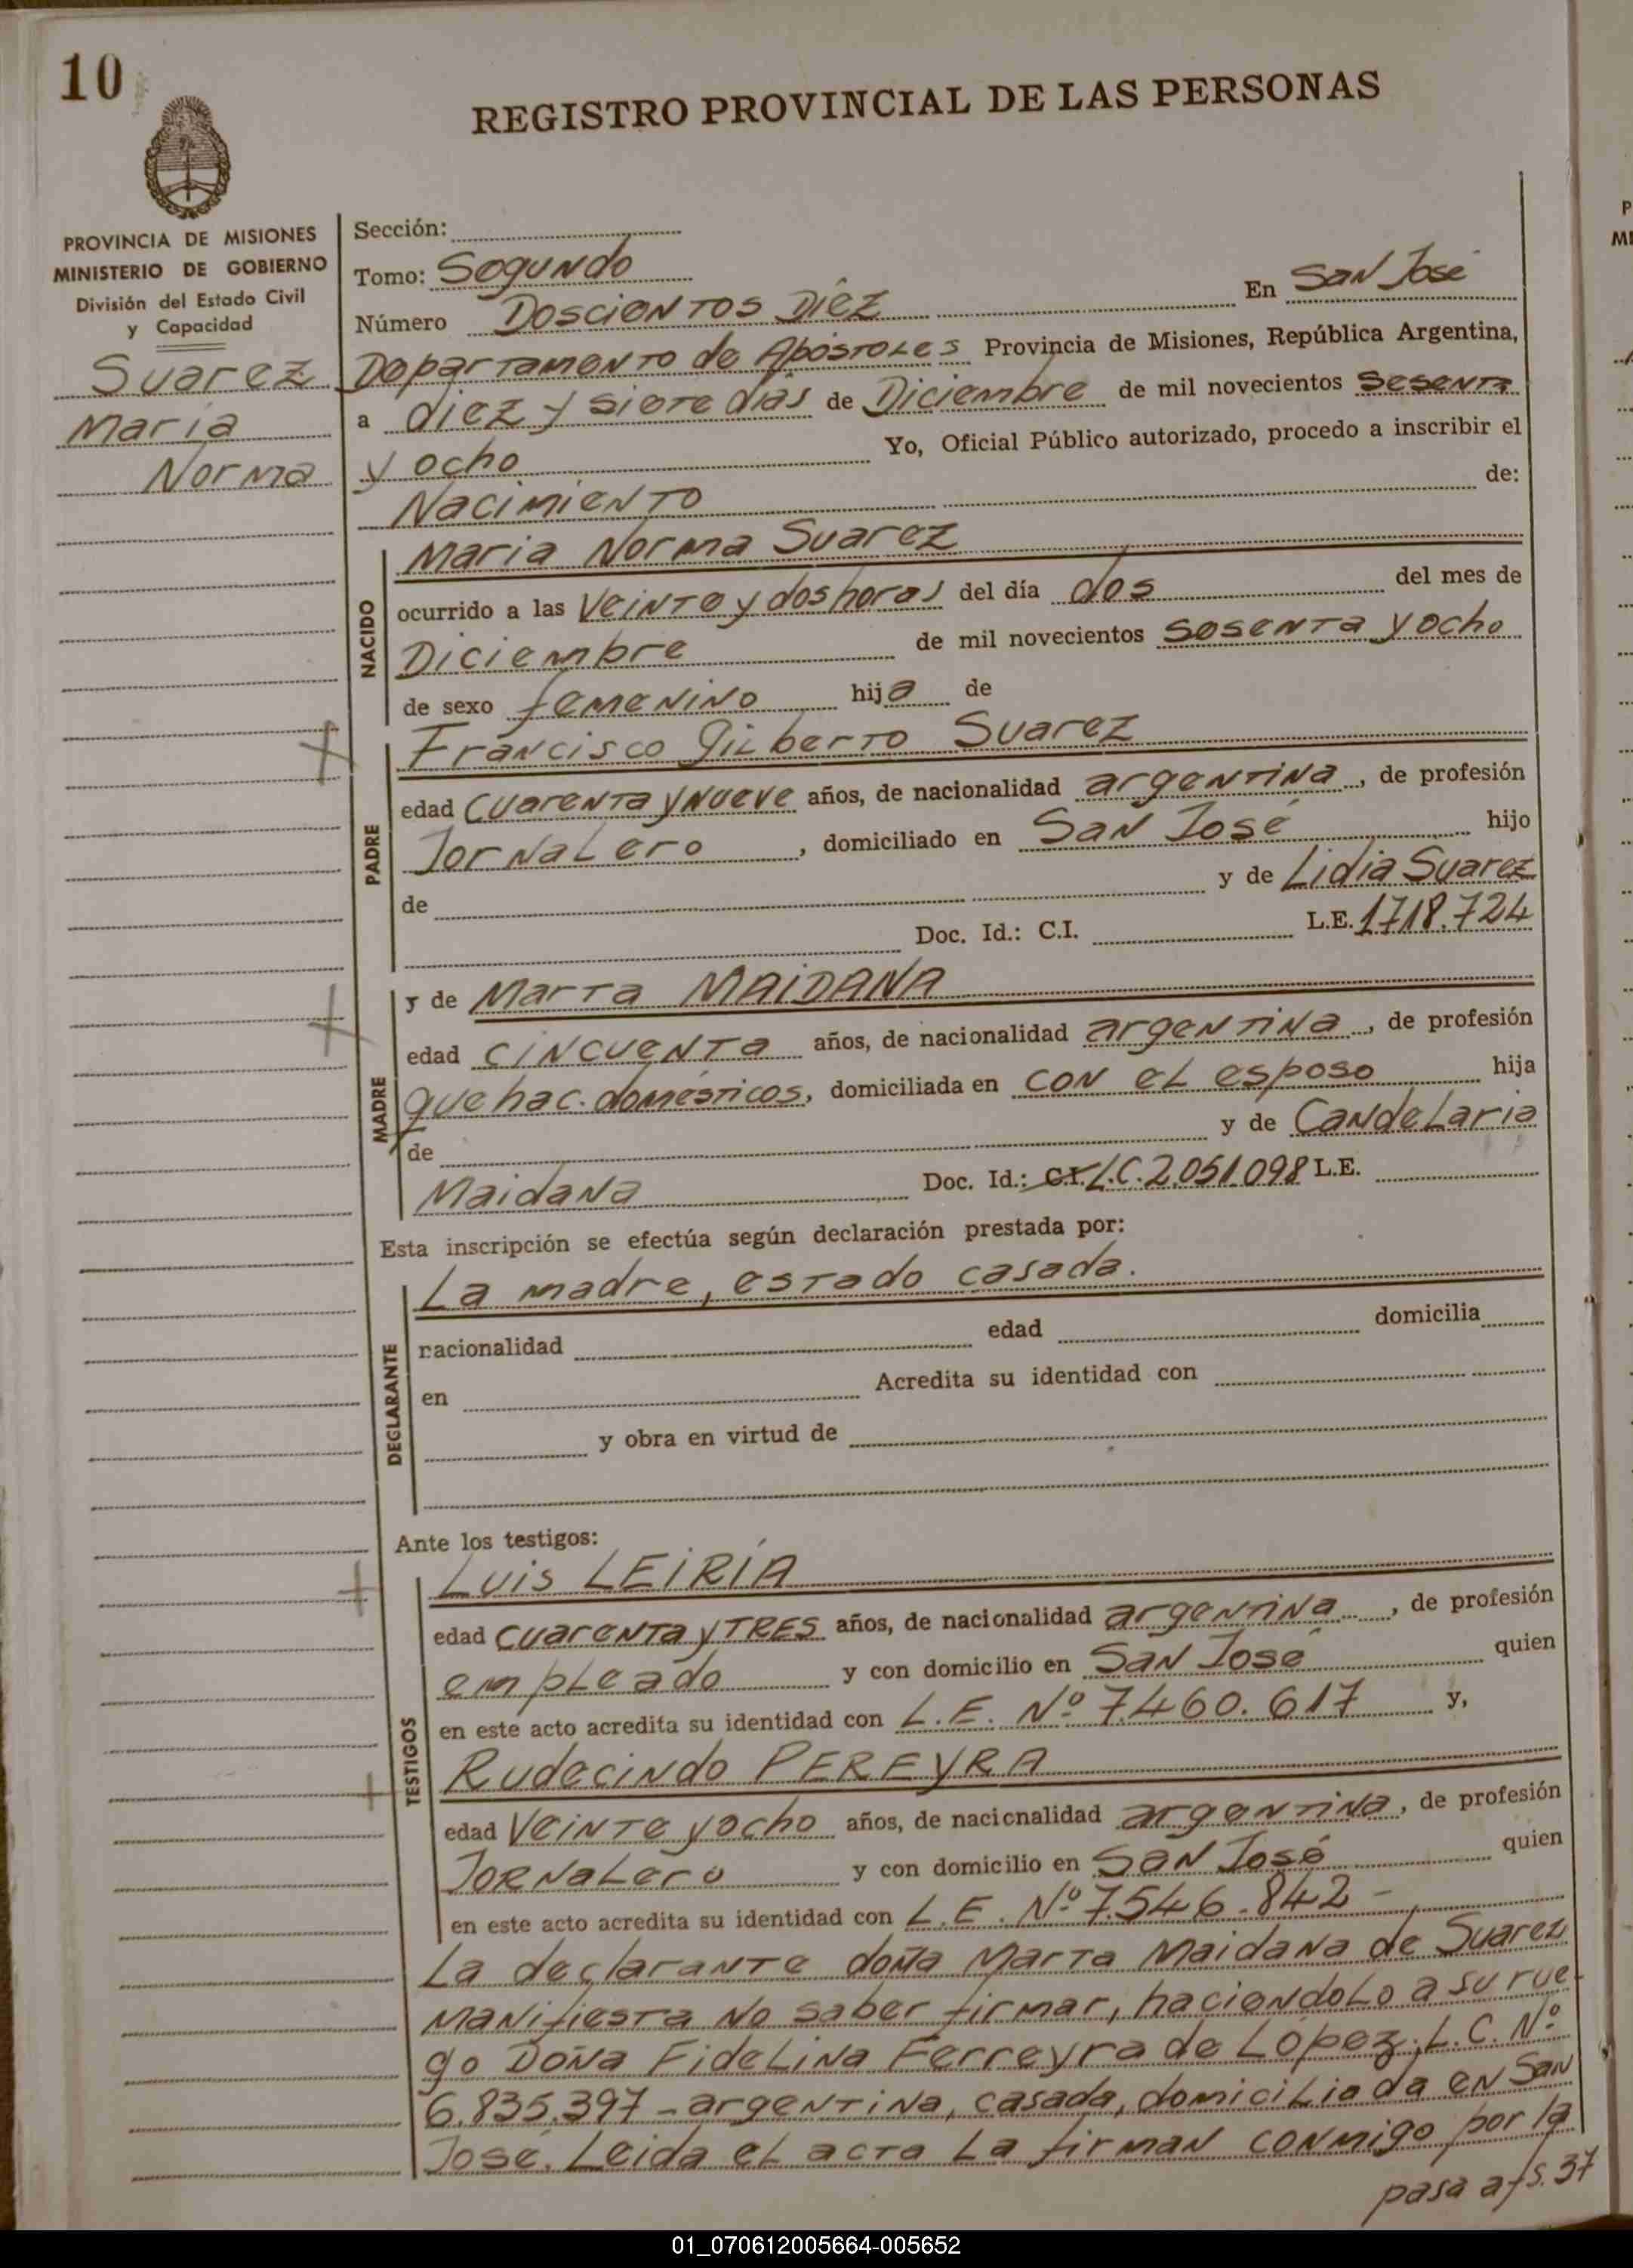 10
REGISTRO PROVINCIAL DE LAS PERSONAS
PROVINCIA DE MISIONES
MINISTERIO DE GOBIERNO
División del Estado Civil
y Capacidad
Suarez
María
Norma
Sección:
Tomo: Segundo
Número Doscientos Diez En San José
Departamento de Apóstoles Provincia de Misiones, República Argentina,
a diez y siete días de Diciembre de mil novecientos sesenta
y ocho Yo, Oficial Público autorizado, procedo a inscribir el
Nacimiento de:
NACIDO
Maria Norma Suarez
ocurrido a las veinte y dos horas del día dos del mes de
Diciembre de mil novecientos sesenta y ocho
de sexo femenino hija de
PADRE
Francisco Gilberto Suarez
edad cuarenta y nueve años, de nacionalidad argentina, de profesión
Jornalero, domiciliado en San José hijo
de y de Lidia Suarez
Doc. Id.: C.I. L.E. 1718.724
MADRE
y de Marta MAIDANA
edad cincuenta años, de nacionalidad argentina, de profesión
quehac. domésticos, domiciliada en con el esposo hija
de y de Candelaria
Maidana Doc. Id.: C.I. L.C. 2.051.098 L.E.
Esta inscripción se efectúa según declaración prestada por:
DECLARANTE
La madre, estado casada.
nacionalidad edad domicilia
en Acredita su identidad con
y obra en virtud de
Ante los testigos:
TESTIGOS
Luis LEIRÍA
edad cuarenta y TRES años, de nacionalidad argentina, de profesión
empleado y con domicilio en San José quien
en este acto acredita su identidad con L.E. Nº 7.460.617 y,
Rudecindo PEREYRA
edad veinte y ocho años, de nacionalidad argentina, de profesión
Jornalero y con domicilio en San José quien
en este acto acredita su identidad con L.E. Nº 7.546.842 -
La declarante doña Marta Maidana de Suarez
manifiesta no saber firmar, haciendolo a su rue-
go Doña Fidelina Ferreyra de López, L.C. Nº
6.835.397 - argentina, casada, domiciliada en San
José. Leida el acta la firman conmigo por la
pasa a fs. 37
01_070612005664-005652